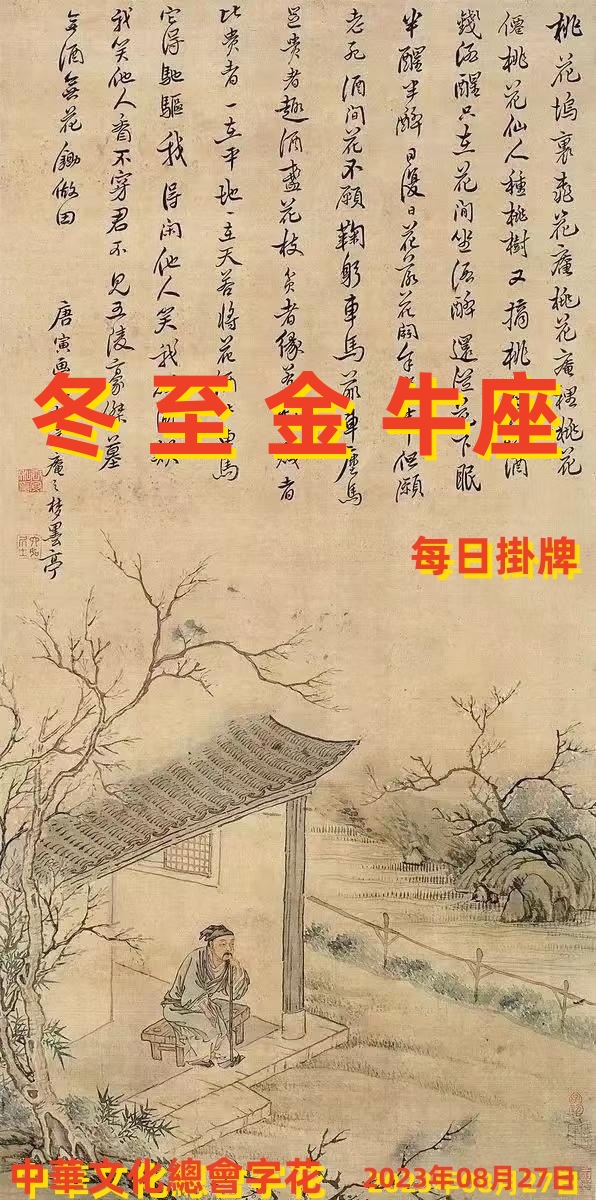 桃花塢裏桃花庵桃花庵裡桃花
僊桃花仙人種桃樹又摘桃酒
錢酒醒只在花間坐酒醉還從花下眠
半醒半醉日復日花落花開年年但願
老死酒間花不願鞠躬車馬前車塵馬
足貴者趣酒盞花枝貧者緣若賤者
比貴者一在平地一在天若將花酒車馬
它得馳驅我得閑他人笑我
我笑他人看不穿君不見五陵豪傑墓
無酒無花鋤做田
唐寅画庵之梦墨亭
冬至金牛座
每日掛牌
中華文化總會字花
2023年08月27日